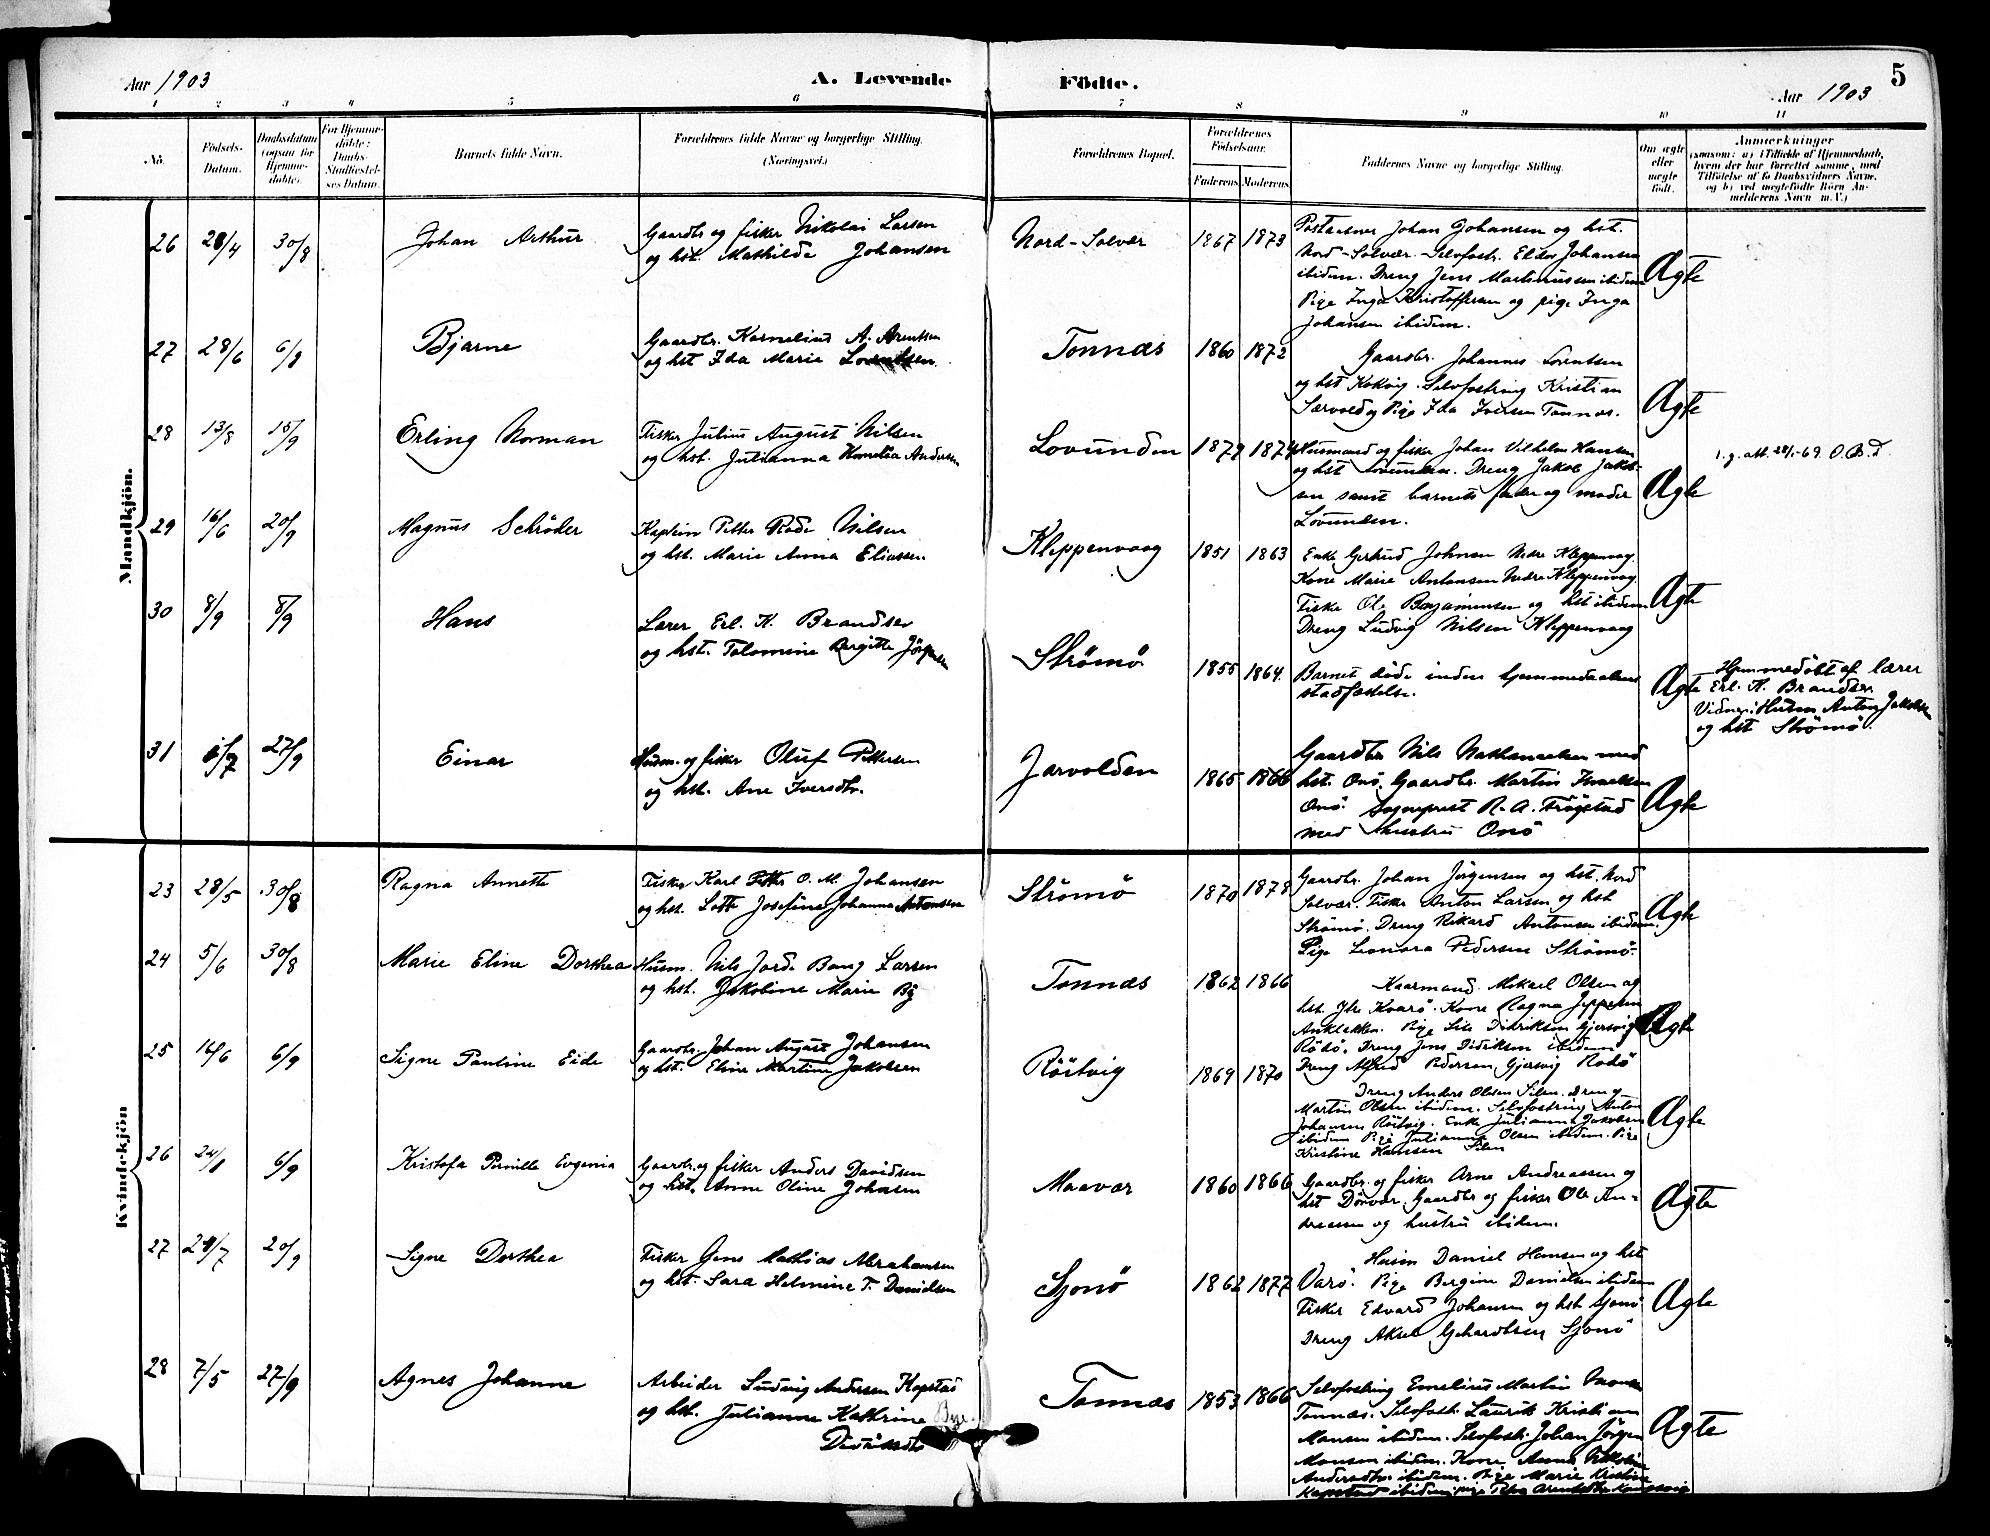 Aar 1903
A. Levende Födte.
5
Aar 1903
1 2 3 4 5 6 7 8 9 10 11
No.
Födsels-Datum.
Daabsdatum (ogsaa for Hjemmedöbte).
For Hjemmedöbte: Daabs-Stadfæstelses Datum.
Barnets fulde Navn.
Forældrenes fulde Navne og borgerlige Stilling. (Næringsvei.)
Forældrenes Bopæl.
Forældrenes Födselsaar.
Faderens Moderens
Faddernes Navne og borgerlige Stilling.
Om ægte eller uægte födt.
Anmærkninger
(saasom: a) i Tilfælde af Hjemmedaab, hvem der har forrettet samme, med Tilföielse af to Daabsvidners Navne, og b) ved uægtefödte Börn Anmelderens Navn m.V.)
Mandkjön.
26 28/4 30/8 Johan Arthur
Gaardbr og fisker Nikolai Larsen
og hst. Mathilde Johansen
Nord-Solvær 1867 1873
Johan Johansen og hst.
Nord-Solvær. Selvfostr. Eldor Johansen
ibidem. Dreng Jens Martinussen ibidem
Pige Inga Kristoffersen og pige Inga
Johansen ibidem.
Ægte
27 28/6 6/8 Bjarne
Gaardbr. Kornelius A. Arentsen
og hst Ida Marie Lorentsen.
Tonnæs 1860 1872
Gaardbr. Johannes Lorentsen
og hst Kokvig. Selvfostring Kristian
og Pige Ida Iversen Tonnæs.
Ægte
28 13/8 15/9 Erling Norman
Fisker Julius August Nilsen
og hst. Julianna Kornelia Andersen
Lovunden 1879 1874
Husmand og fisker Johan Vilhelm Hansen
og hst Lovunden. Dreng Jakob Jakob-
sen samt barnets fader og moder
Lovunden.
Ægte
29 16/6 20/9 Magnus Schröder
Kaptein Petter Rode Nilsen
og hst. Marie Anna Eliassen
Kleppenvaag 1851 1863
Enke Gertrud Johnsen Nedre Kleppenvaag
Kone Marie Antonsen Nedre Kleppenvaag
Fisker Ole Benjaminsen og hst ibidem
Dreng Ludvig Nilsen Kleppenvaag
Ægte
30 8/9 8/9 Hans
Lærer Erl. K. Brandser
og hst. Tolomine Birgitte Jörgensen
Strömö 1855 1864.
Barnet döde inden hjemmedaabens
stadfæstelse.
Ægte
Hjemmedöbt af lærer
Erl. K. Brandser.
Vidner: Husm Anton Jakobsen
og hst Strömö.
31 27/9 Einar
Husm. og fisker Oluf Pettersen
og hst. Ane Iversdtr.
Jarvolden 1865 1866
Gaardbr Nils Nathanaelsen med
hst. Onö. Gaardbr. Martin Ismaelsen
Onö. Sogneprest R. A. Frögstad
med hustru Onö
Ægte
Kvindekjön
23 28/5 30/8 Ragna Annette
Fisker Karl Petter O. M. Johansen
og hst. Lotte Josefine Johanna Antonsen
Strömö 1870 1878
Gaardbr. Johan Jörgensen og hst. Nord
Solvær. Fisker Anton Larsen og hst
Strömö. Dreng Rikard Antonsen ibidem.
Pige Leonora Pedersen Strömö.
Ægte
24 5/6 30/8 Marie Eline Dorthea
Husm. Nils Jorde Bang Larsen
og hst. Jakobine Marie
Tonnæs 1862 1866
Kaarmand. Mikael Olsen og
hst. Kvarö. Kone Ragna Jeppesen
Pige Lise Didriksen Gjersvig
Rödö. Dreng Jens Didriksen ibidem
Dreng Alfred Pedersen Gjersvig Rödö
Ægte
25 16/6 6/9 Signe Pauline Eide
Gaardbr. Johan August Johansen
og hst. Eline Martine Jakobsen
Röitvig 1869 1870
Dreng Anders Olsen Silen. Dreng
Martin Olsen ibidem. Selvfostring Anton
Johansen Röitvig. Enke Julianna Jakobsen
ibidem Pige Julianna Olsen ibidem. Pige
Kristine Hansen Silen
Ægte
26 6/9 Kristofa Pernille Evgenia
Gaardbr. og fisker Anders Davidsen
og hst. Anne Oline Johnsen
Maavær 1860 1866
Gaardbr. og fisker Arne Andreassen og
hst Dörvær. Gaardbr og fisker Ole An-
dreassen og hustru ibidem.
Ægte
27 20/9 Signe Dorthea
Fisker Jens Mathias Abrahamsen
og hst. Sara Helmine F. Danielsen
Sjonö 1862 1877
Husm Daniel Hansen og hst
Varö. Pige Bergine Danielsen ibidem
Fisker Edvard Johansen og hst Sjonö
Dreng Aksel Gehardtsen Sjonö
Ægte
28 7/5 27/9 Agnes Johanne
Arbeider Ludvig Andersen Kopstad
og hst. Julianne Kathrine
Tonnæs 1853 1866
Selvfostring Emelius Martin Monsen
Tonnæs. Selvfostr. Laurits Kristian
Monsen ibidem. Selvfostr. Johan Jörgen
Monsen ibidem. Kone Anna
Andersdtr ibidem. Pige Marie Kristine
Ægte